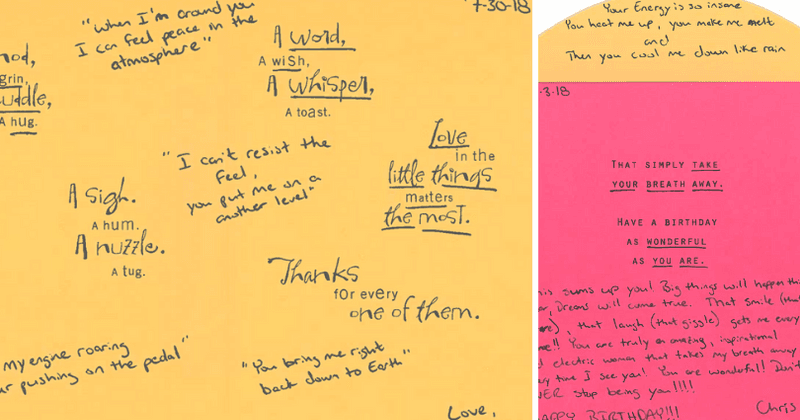 "when I'm around you
I can feel peace in the
atmosphere"
7-30-18
A word,
A wish,
A whisper,
A toast.
nod,
grin,
A hug.
"I can't resist the
feel,
you put me on a
another level"
Love
in the
little things
matters
the most.
A sigh.
A hum.
A nuzzle.
A tug.
Thanks
for every
one of them.
my engine roaring
pushing on the pedal"
"You bring me right
back down to Earth"
Love,
Your Energy is so insane
You heat me up, you make me melt
and
Then you cool me down like rain
-3-18
THAT SIMPLY TAKE
YOUR BREATH AWAY.
HAVE A BIRTHDAY
AS WONDERFUL
AS YOU ARE.
sums up you! Big things will happen
Dreams will come true. That smile
, that laugh (that giggle) gets me every
!! You are truly an amazing, inspirational
electric woman that takes my breath away
time I see you! You are wonderful! Don't
stop being you!!!!
HAPPY BIRTHDAY!!!
Chris